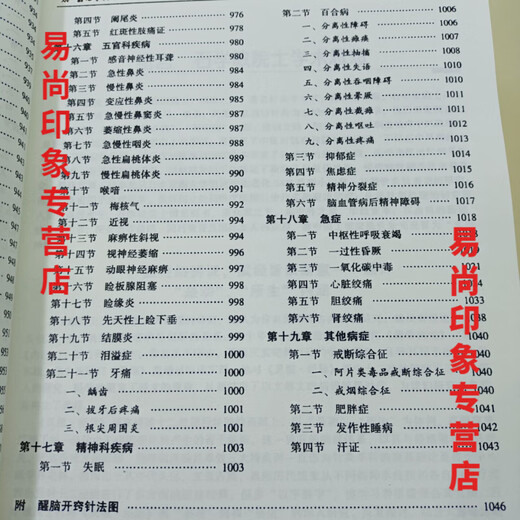 第四节 阑尾炎 976
第五节 红斑性肢痛证 978
第十六章 五官科疾病 980
第一节 感音神经性耳聋 980
第二节 急性鼻炎 983
第三节 慢性鼻炎 983
第四节 变应性鼻炎 985
第五节 急慢性鼻窦炎 987
第六节 萎缩性鼻炎 987
第七节 急慢性咽炎 988
第八节 急性扁桃体炎 989
第九节 慢性扁桃体炎 990
第十节 喉喑 991
第十一节 梅核气 992
第十二节 近视 994
第十三节 麻痹性斜视 994
第十四节 视神经萎缩 994
第十五节 动眼神经麻痹 997
第十六节 睑板腺阻塞 998
第十七节 睑缘炎 998
第十八节 先天性上睑下垂 999
第十九节 结膜炎 999
第二十节 泪溢症 1000
第二十一节 牙痛 1000
一、龋齿 1000
二、拔牙后疼痛 1001
三、根尖周围炎 1001
第十七章 精神科疾病 1003
第一节 失眠 1003
第二节 百合病 1006
一、分离性障碍 1006
二、分离性瘫痪 1008
三、分离性抽搐 1009
四、分离性失语 1010
五、分离性吞咽障碍 1010
六、分离性晕厥 1011
七、分离性截瘫 1011
八、分离性呕吐 1012
九、分离性疼痛 1013
第三节 抑郁症 1014
第四节 焦虑症 1015
第五节 精神分裂症 1016
第六节 脑血管病后精神障碍 1017
第十八章 急症 1018
第一节 中枢性呼吸衰竭
第二节 一过性昏厥
第三节 一氧化碳中毒 1021
第四节 心脏绞痛
第五节 胆绞痛 1033
第六节 肾绞痛 1038
第十九章 其他病症 1040
第一节 戒断综合征 1040
一、阿片类毒品戒断综合征
1040
二、戒烟综合征 1040
第二节 肥胖症 1041
第三节 发作性睡病 1042
第四节 汗证 1043
附 醒脑开窍针法图 1046
易尚印象专营店
易尚印象专营店